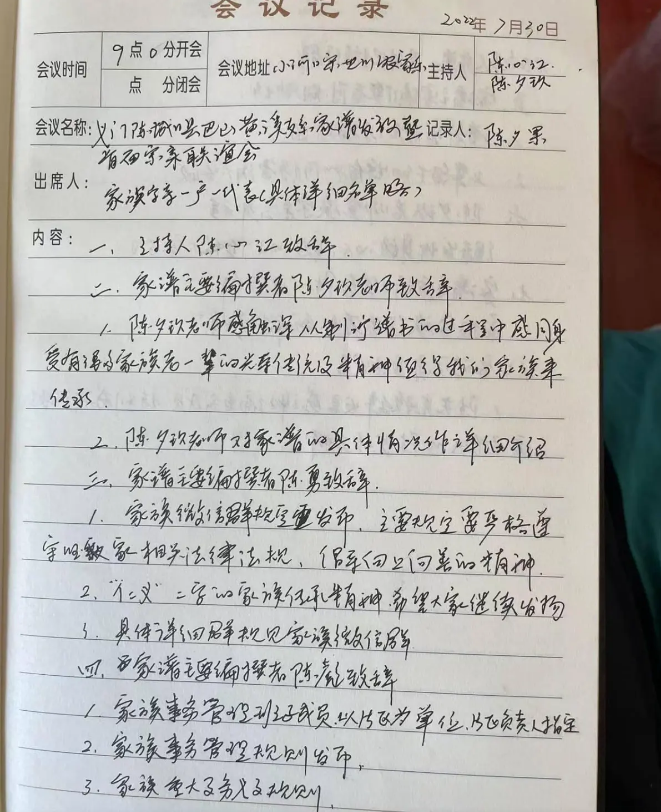 会议记录
2022年7月30日
会议时间 9点0分开会 点 分闭会 会议地址 小河口宗 农家乐 主持人 陈心江 陈夕玖
会议名称: 义门陈 县巴山黄溪 家谱发放暨 记录人: 陈夕果
首届宗亲联谊会
出席人: 家族宗亲一户一代表(具体详细名单略)
内容: 一、主持人陈心江致辞
二、家谱主要编撰者陈夕玖老师致辞.
1. 陈夕玖老师感触深 从制订谱书的过程中感同身
受有得 家族老一辈的光荣传统及精神值得我们家族来
传承.
2. 陈夕玖老师对家谱的具体情况作详细介绍
三、家谱主要编撰者陈勇致辞.
1. 家族微信群规定 发布, 主要规定要严格遵
守 家相关法律法规, 倡导向上向善的精神.
2. “仁义”二字的家族传承精神. 希望大家继续发扬
3. 具体详细群规见家族微信群
四、 家谱主要编撰者陈彪致辞
1. 家族事务管理班子成员, 以片区为单位, 片区负责人指定
2. 家族事务管理规则发布,
3. 家族重大 义及规则,